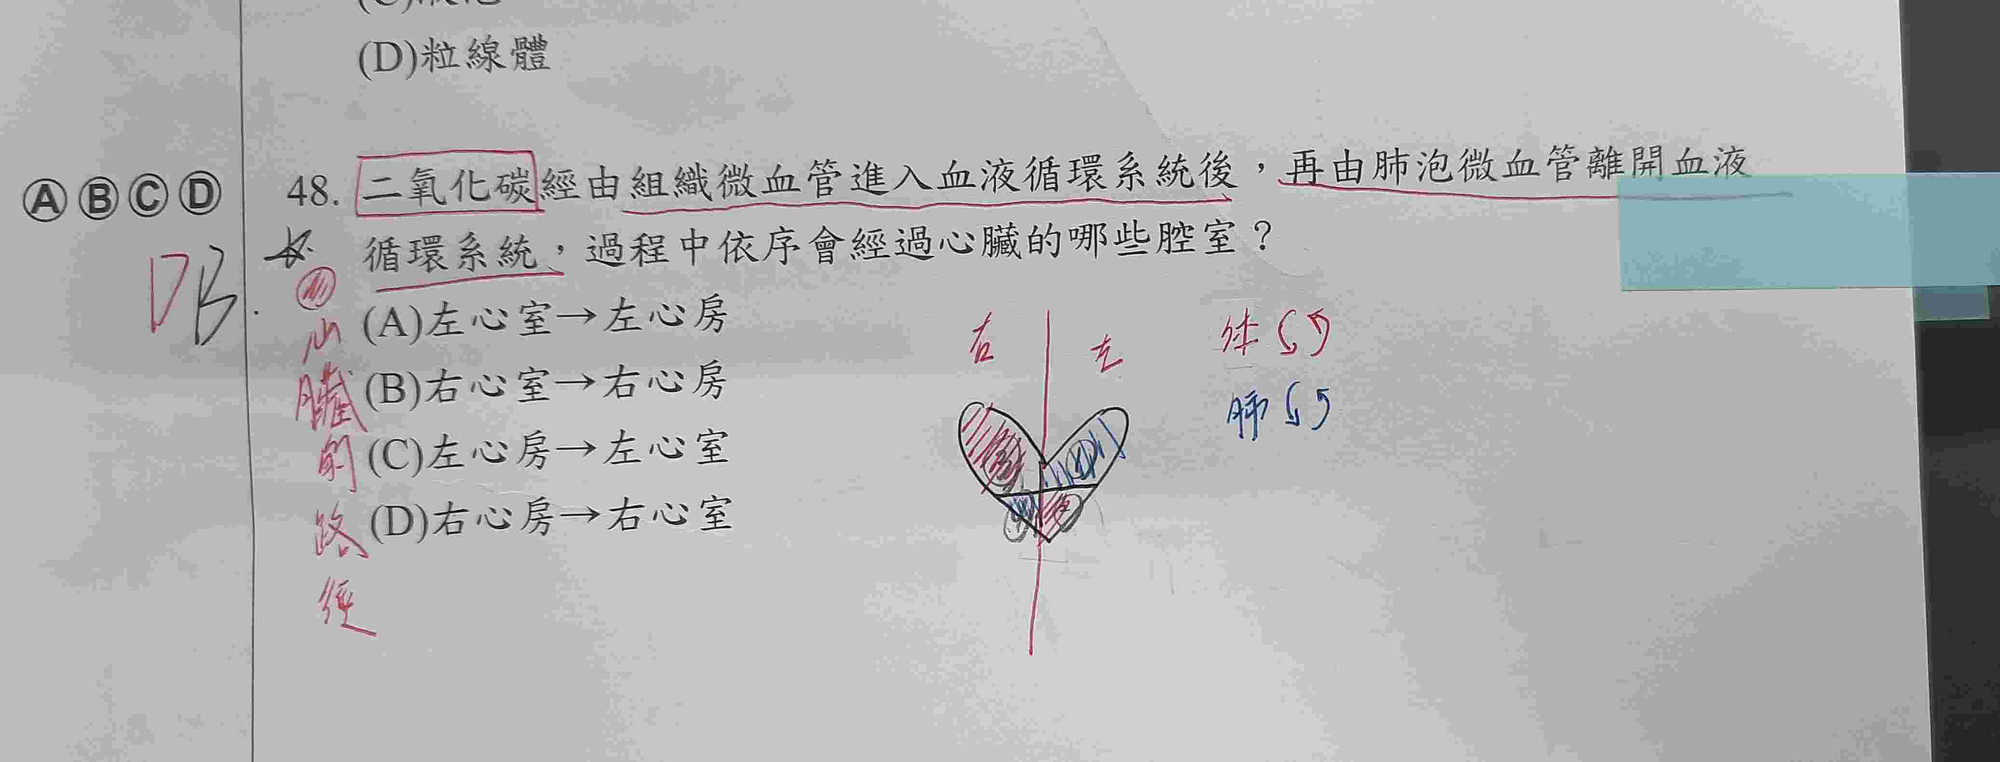 (D)粒線體
Ⓐ Ⓑ Ⓒ Ⓓ
48. 二氧化碳經由組織微血管進入血液循環系統後，再由肺泡微血管離開血液
循環系統，過程中依序會經過心臟的哪些腔室？
DB
(A)左心室→左心房
(B)右心室→右心房
(C)左心房→左心室
(D)右心房→右心室
心臟的路徑
右 左
体
肺